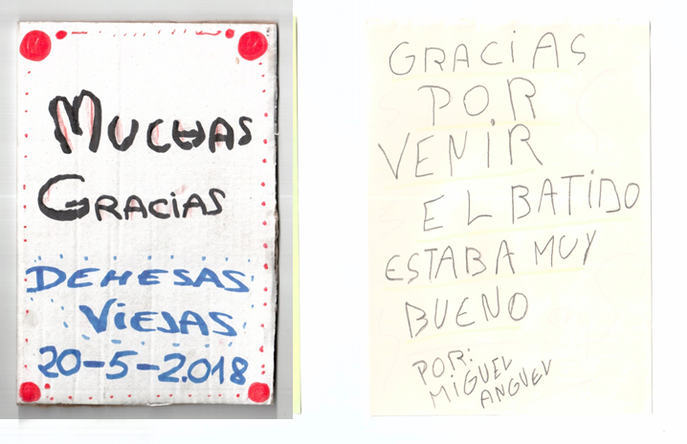 MUCHAS
GRACIAS
DEHESAS
VIEJAS
20-5-2.018
GRACIAS
POR
VENIR
EL BATIDO
ESTABA MUY
BUENO
POR:
MIGUEL
ANGUEL